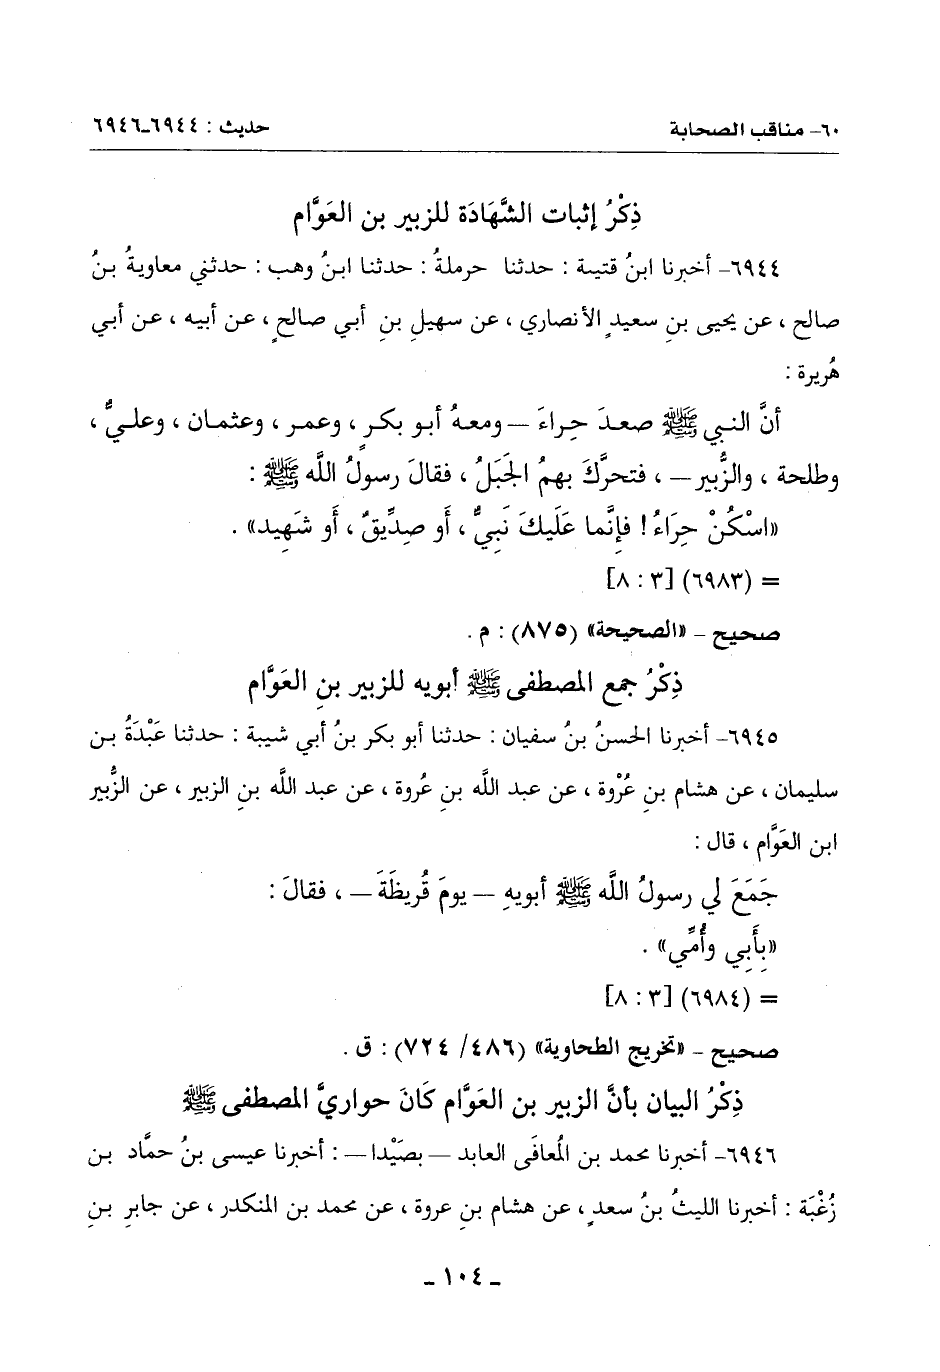 ٦٠- مناقب الصحابة حديث : ٦٩٤٤-٦٩٤٦
ذِكْرُ إثبات الشَّهَادَة للزبير بن العَوَّام
٦٩٤٤- أخبرنا ابنُ قتيبة : حدثنا حرملةُ : حدثنا ابنُ وهب : حدثني معاويةُ بنُ
صالح ، عن يحيى بنِ سعيدٍ الأنصاري ، عن سهيلِ بنِ أبي صالحٍ ، عن أبيه ، عن أبي
هُريرة :
أنَّ النبي ﷺ صعدَ حِراءَ — ومعهُ أبو بكرٍ ، وعمر ، وعثمان ، وعليٌّ ،
وطلحة ، والزُّبير — ، فتحرَّكَ بهمُ الجَبَلُ ، فقالَ رسولُ اللَّه ﷺ :
«اسْكُنْ حِرَاءُ ! فإنَّما عَلَيكَ نَبِيٌّ ، أَو صِدِّيقٌ ، أَو شَهِيد» .
= (٦٩٨٣) [٣ : ٨]
صحيح - «الصحيحة» (٨٧٥) : م .
ذِكْرُ جمع المصطفى ﷺ أبويه للزبير بنِ العَوَّام
٦٩٤٥- أخبرنا الحسنُ بنُ سفيان : حدثنا أبو بكر بنُ أبي شيبة : حدثنا عَبْدَةُ بن
سليمان ، عن هشام بنِ عُرْوة ، عن عبد اللَّه بنِ عُروة ، عن عبد اللَّه بنِ الزبير ، عن الزُّبير
ابن العَوَّام ، قال :
جَمَعَ لي رسولُ اللَّه ﷺ أبويهِ — يومَ قُريظَةَ — ، فقالَ :
«بِأَبِي وأُمِّي» .
= (٦٩٨٤) [٣ : ٨]
صحيح - «تخريج الطحاوية» (٤٨٦/ ٧٢٤) : ق .
ذِكْرُ البيان بأنَّ الزبير بن العَوَّام كَانَ حواريَّ المصطفى ﷺ
٦٩٤٦- أخبرنا محمد بن المُعافَى العابد — بصَيْدا — : أخبرنا عيسى بنُ حمَّاد بن
زُغْبَة : أخبرنا الليثُ بنُ سعدٍ ، عن هشام بنِ عروة ، عن محمد بن المنكدر ، عن جابرِ بنِ
- ١٠٤ -